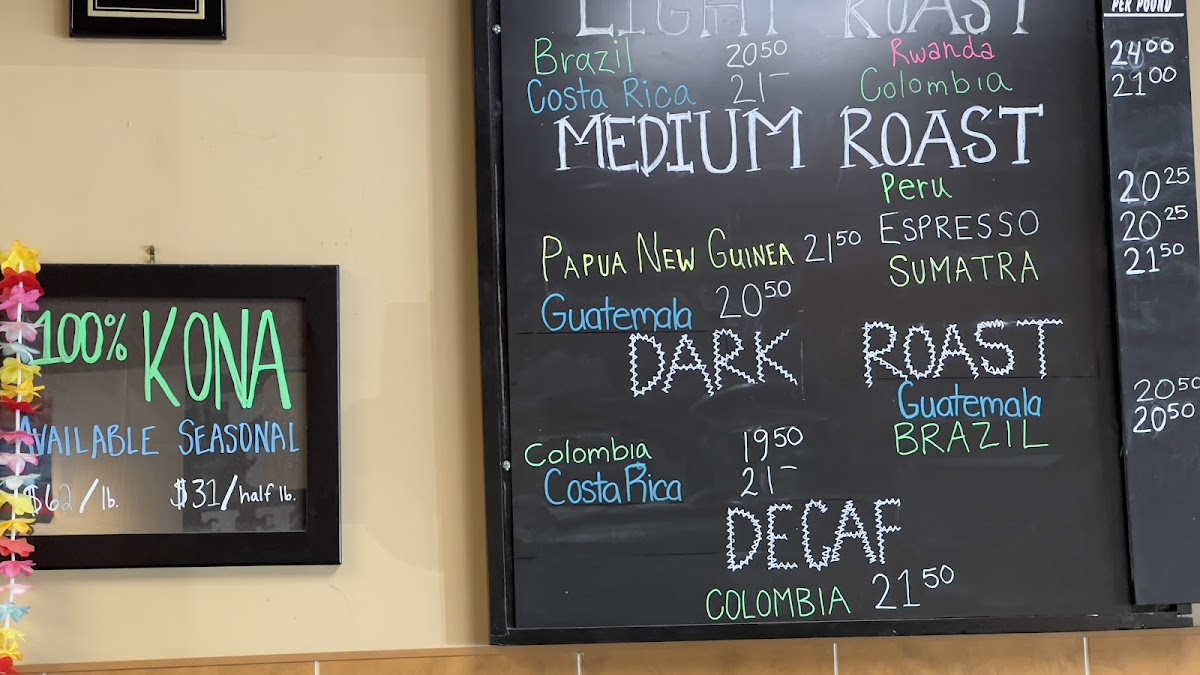 100% KONA
AVAILABLE SEASONAL
$62/lb. $31/half lb.
PER POUND
LIGHT ROAST
Brazil 20 50 Rwanda 24 00
Costa Rica 21 — Colombia 21 00
MEDIUM ROAST
Peru 20 25
ESPRESSO 20 25
PAPUA NEW GUINEA 21 50 SUMATRA 21 50
Guatemala 20 50
DARK ROAST
Guatemala 20 50
Colombia 19 50 BRAZIL 20 50
Costa Rica 21 —
DECAF
COLOMBIA 21 50